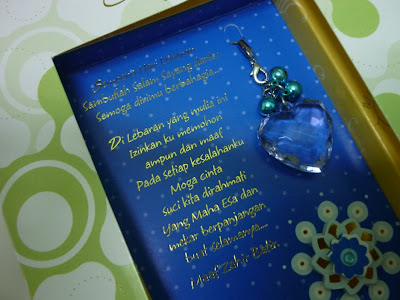 Sambutlah Salam Sayang Jamie
Semoga dirimu berbahagia...
Di Lebaran yang mulia ini
Izinkan ku memohon
ampun dan maaf
Pada setiap kesalahanku
Moga cinta
suci kita dirahmati
Yang Maha Esa dan
mekar berpanjangan
buat selamanya...
Maaf Zahir Batin